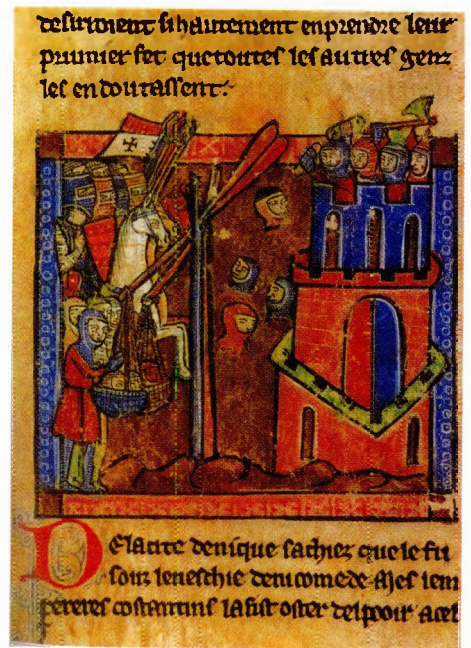 desirroient si hautement enprendre leur
prumier fet que toutes les autres genz
les en doutassent.
De la cite de nique sachiez que le fu
soiz leveschie de nicomede. Mes lem
pereres costantins la fist oster del pooir a cel